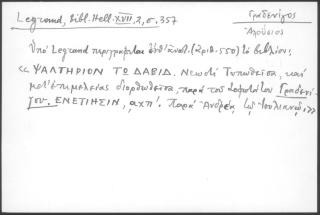 Legrand, Bibl. Hell. XVII, 2, σ. 357
Γραδενίγος
Ἀλοΰσιος
Ὑπὸ Legrand περιγράφεται ὑπ' ἀριθ. (ἀριθ. 550) τὸ βιβλίον:
« ΨΑΛΤΗΡΙΟΝ ΤΩ ΔΑΒΙΔ. Νεωστὶ Τυπωθεῖσα, καὶ
μετ' ἐπιμελείας διορθωθεῖσα, παρὰ τοῦ Σοφωτάτου Γραδενί-
γου. ΕΝΕΤΙΗΣΙΝ, αχπ΄. Παρὰ Ἀνδρέᾳ τῷ Ἰουλιανῷ, »